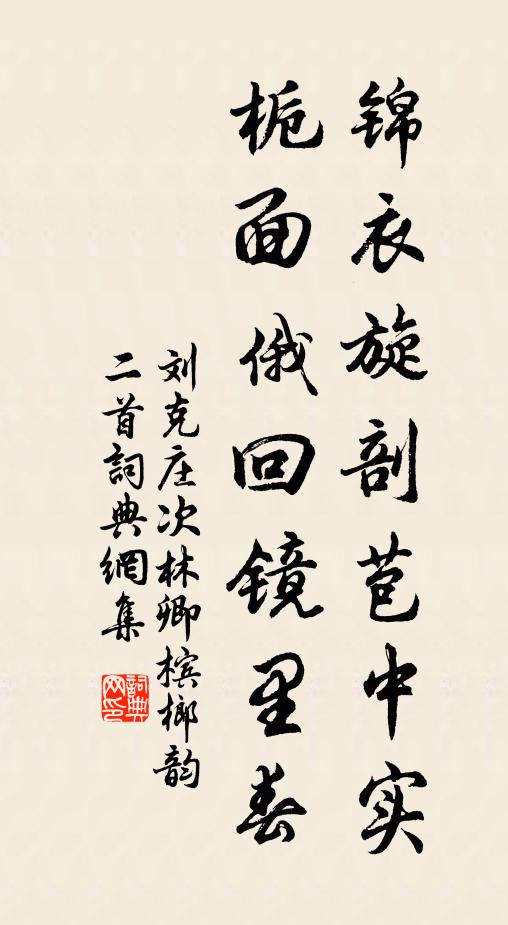 锦衣旋剖苞中实
栀面俄回镜里春
刘克庄次林卿槟榔韵
二首詞典網集
詞典网印